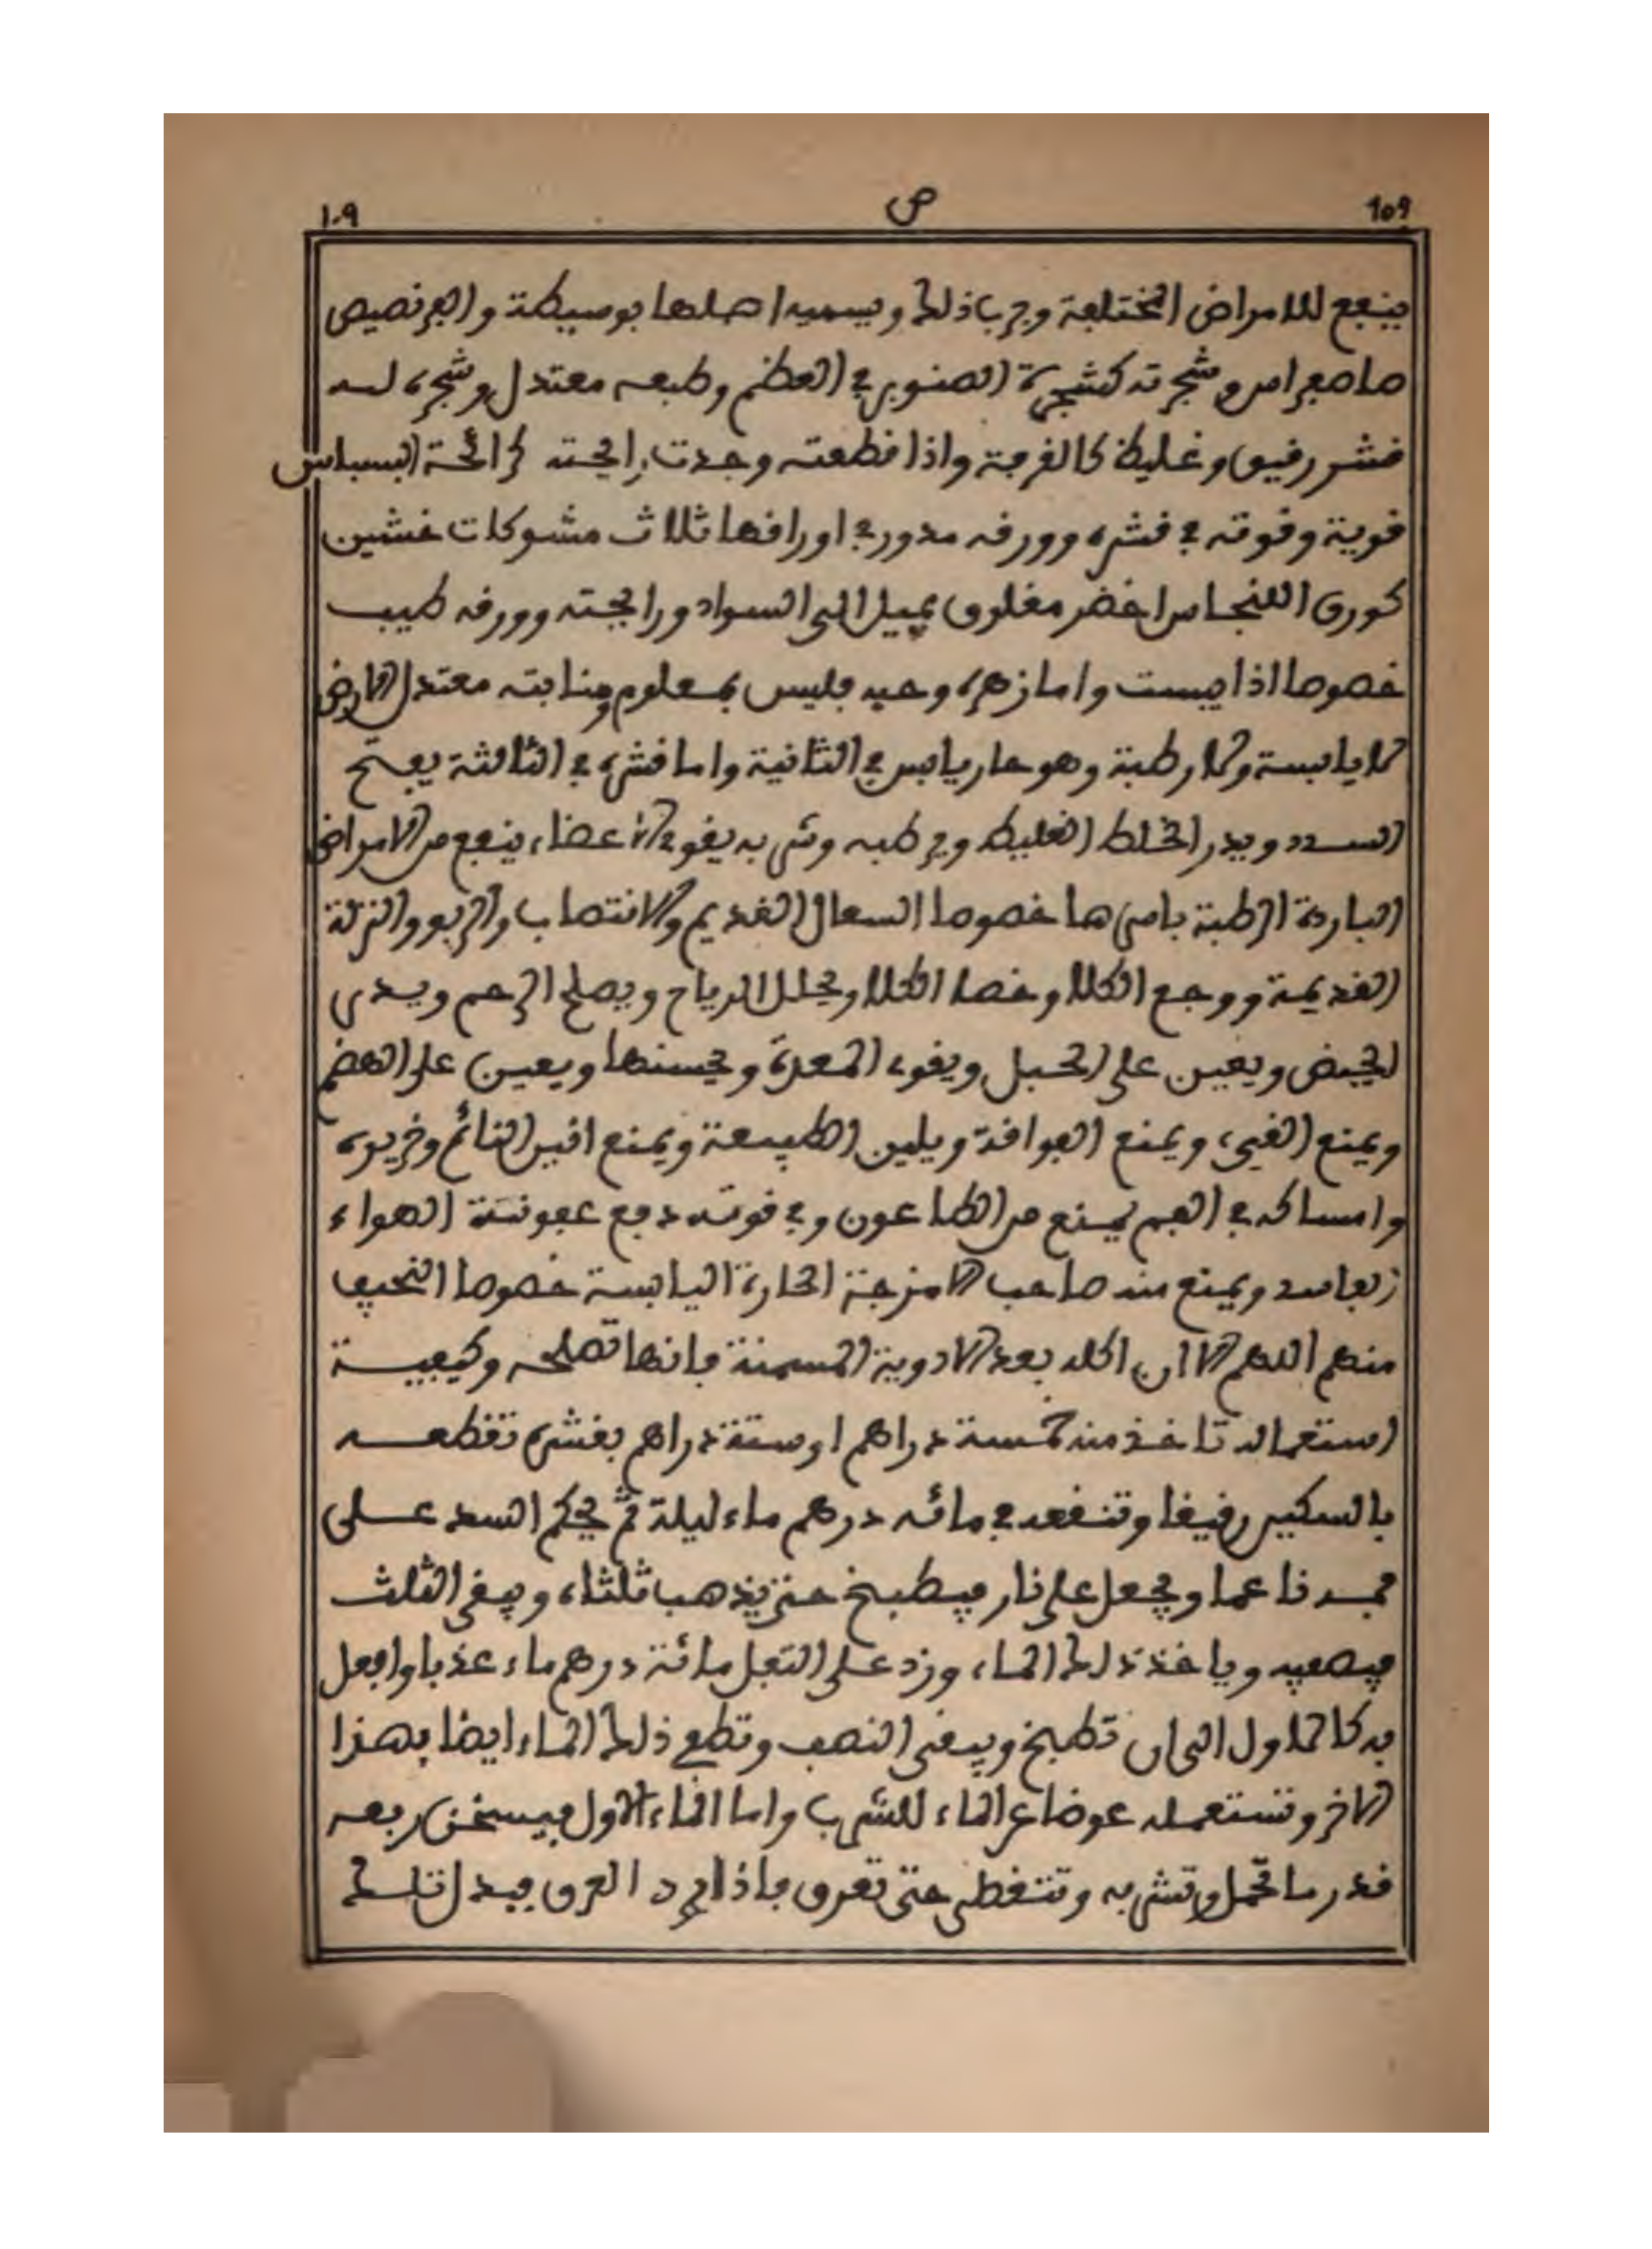 ١٠٩ ص ١٠٩
فينفع للامراض المختلفة وجرب ذلك ويسميه اهلها بوسيطة والبرنصيص
صاصفرامر وشجرته كشجرة الصنوبر في العظم وطبعه معتدل وشجره لــه
قشر رفيق وغليظ كالفرفة واذا قطعته وجدت رايحته كرائحة البسباس
قوية وقوته في قشره وورقه مدور في اوراقها ثلاث مشوكات خشين
كورق اللنجاص اخضر مغلوق يميل الى السواد ورايحته وورقه طيب
خصوصا اذا يبست واما زهره وحبه فليس بمعلوم ومنابته معتدل الارض
لا يابسة ولا رطبة وهو حار يابس في الثانية واما قشره في الثالثة يفتح
السدد ويدر الخلط الغليظ ويرطبه وشربه يقوي الاعضاء ينفع من الامراض
الباردة الرطبة باسرها خصوصا السعال القديم والانتصاب والربو والنزلة
القديمة ووجع الكلا وحصا الكلا ويحلل الرياح ويصلح الرحم ويدر
الحيض ويعين على الحبل ويقوي المعدة ويحسنها ويعين على الهضم
ويمنع القيء ويمنع الفوافة ويلين الطبيعة ويمنع انين النائم وخريره
وامساكه في الفم يمنع من الطاعون وفي قوته دفع عفونة الهواء
الفاسد ويمنع منه صاحب الامزجة الحارة اليابسة خصوصا النحيف
منهم اللهم الا ان اكله بعد الادوية المسمنة فانها تصلحه وكيفيــة
استعماله تاخذ منه خمسة دراهم او ستة دراهم بقشره تقطعــه
بالسكين رقيقا وتنقعه في مائه درهم ماء ليلة ثم يحكم السد عــلى
فمــه ناعما ويجعل على نار فيطبخ حتى يذهب ثلثاه ويبقى الثلث
فيصفيه وياخذ ذلك الماء وزد على الثفل مائة درهم ماء عذبا وافعل
به كالاول الى ان تطبخ ويبقى النصف وتطع ذلك الماء ايضا بهذا
الاخر وتستعمله عوضا عن الماء للشرب واما الماء الاول فيسخن ربعه
قدر ما تحمل وتشربه وتتغطى حتى تعرق فاذا برد العرق فيبدل تلــك